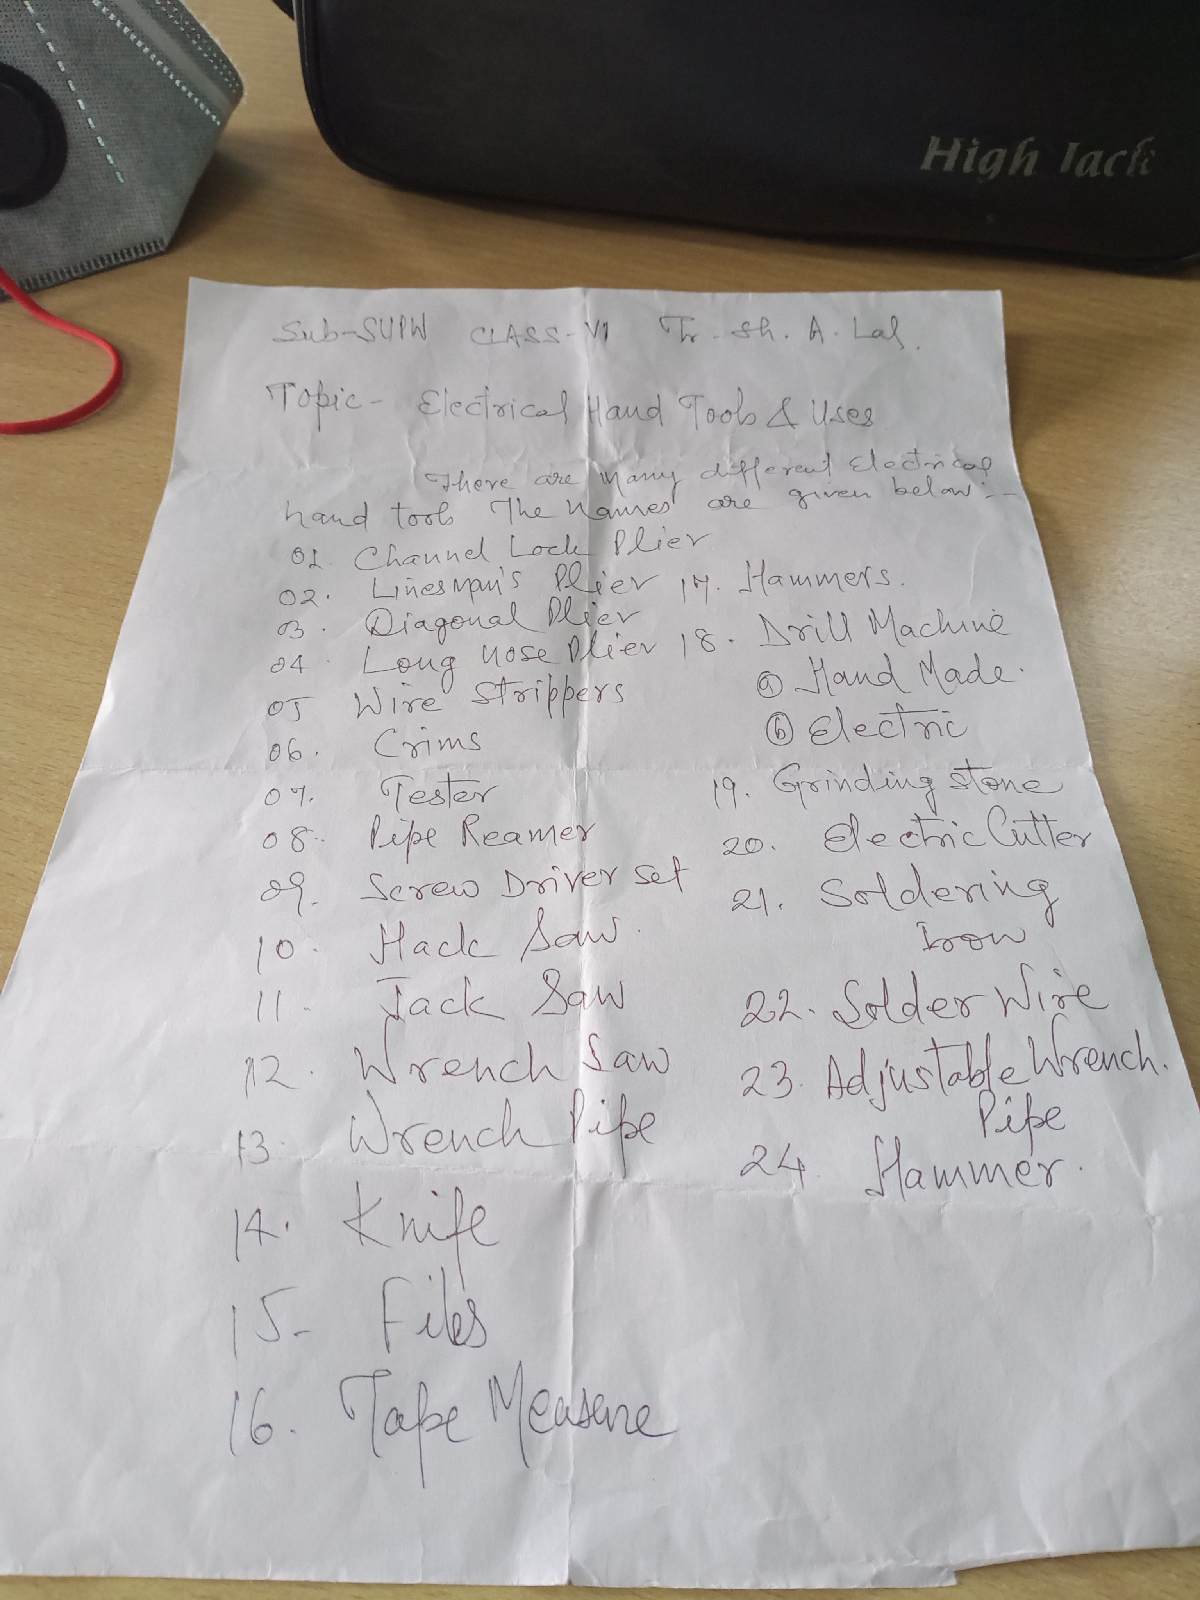 High Jack
Sub-SUPW CLASS-VI Tr. Sh. A. Lal.
Topic- Electrical Hand Tools & Uses
There are many different Electrical
hand tools The Names are given below:-
01. Channel Lock Plier
02. Linesman's Plier
03. Diagonal Plier
04. Long Nose Plier
05 Wire Strippers
06. Crims
07. Tester
08. Pipe Reamer
09. Screw Driver Set
10. Hack Saw.
11. Jack Saw
12. Wrench Saw
13. Wrench Pipe
14. Knife
15- Files
16. Tape Measure
17. Hammers.
18. Drill Machine
(a) Hand Made.
(b) Electric
19. Grinding stone
20. Electric Cutter
21. Soldering
Iron
22. Solder Wire
23. Adjustable Wrench.
Pipe
24. Hammer.